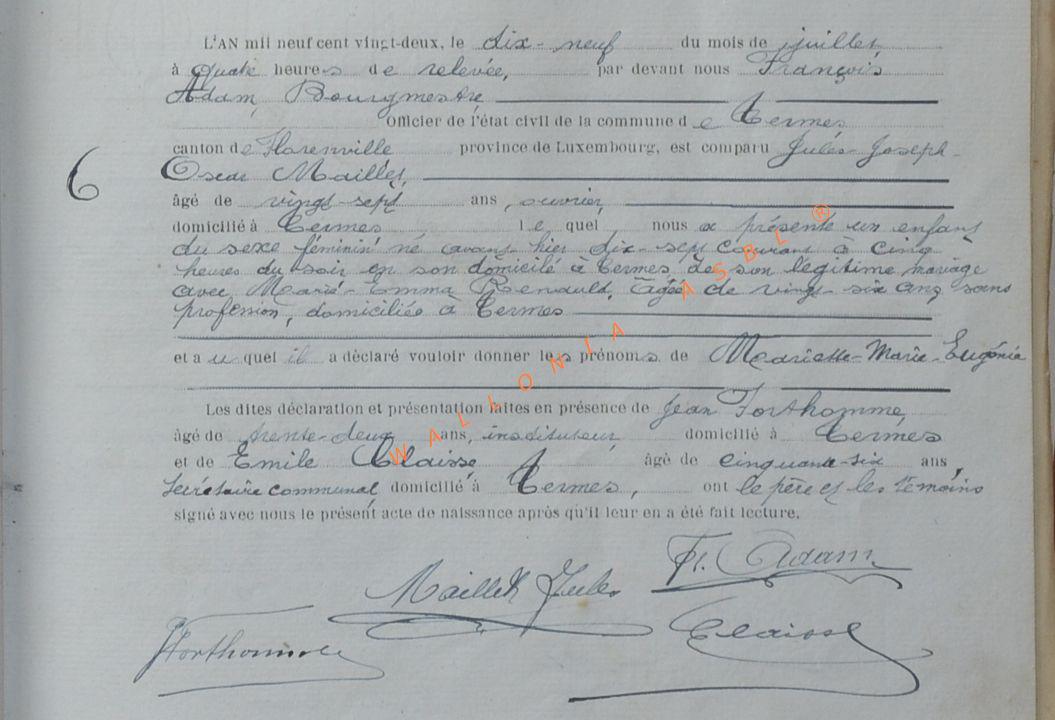 L'AN mil neuf cent vingt-deux, le dix-neuf du mois de juillet
à quatre heures de relevée, par devant nous François
Adam, Bourgmestre
Officier de l'état civil de la commune de Termes
canton de Florenville province de Luxembourg, est comparu Jules-Joseph-
Oscar Maillet,
âgé de vingt-sept ans, ouvrier,
domicilié à Termes lequel nous a présenté un enfant
du sexe féminin né avant hier dix-sept courant à cinq
heures du soir en son domicile à Termes, de son légitime mariage
avec Marie-Emma Renauld, âgée de vingt-six ans, sans
profession, domiciliée à Termes
et auquel il a déclaré vouloir donner les prénoms de Mariette-Marie-Eugénie
Les dites déclaration et présentation faites en présence de Jean Forthomme,
âgé de trente-deux ans, instituteur, domicilié à Termes
et de Emile Claisse, âgé de cinquante-six ans,
Secrétaire communal domicilié à Termes, ont le père et les témoins
signé avec nous le présent acte de naissance après qu'il leur en a été fait lecture.
6
Fr. Adam
Maillet Jules
Forthomme
Claisse
WALLONIA ASBL ®